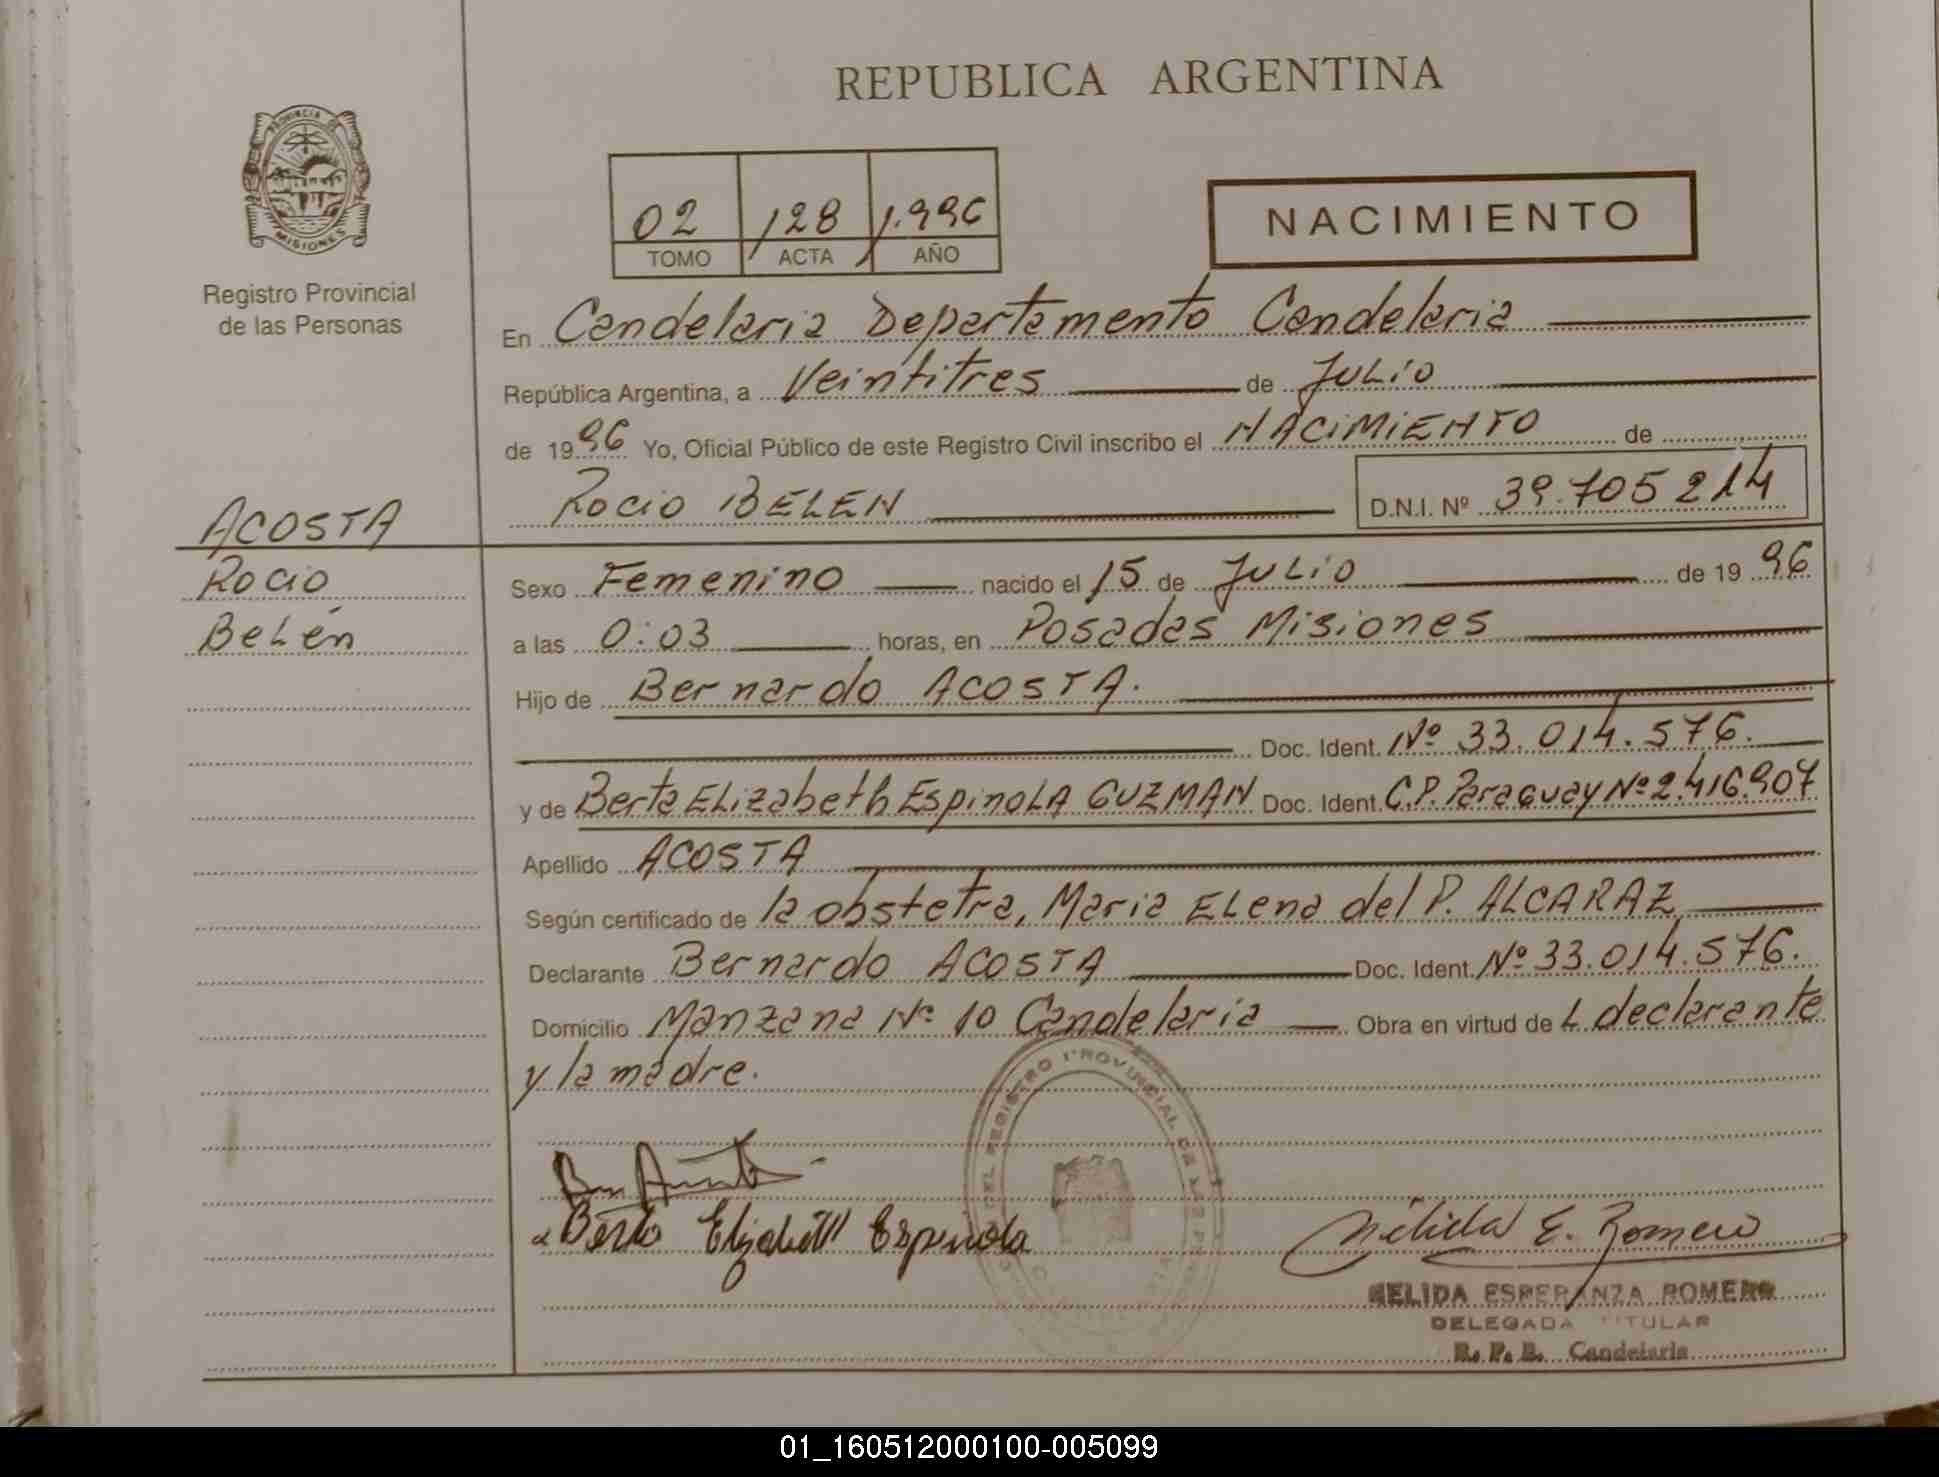 REPUBLICA ARGENTINA
PROVINCIA DE
MISIONES
Registro Provincial
de las Personas
02 128 1.996
TOMO ACTA AÑO
NACIMIENTO
En Candelaria Departamento Candelaria
República Argentina, a Veintitres de Julio
de 1996 Yo, Oficial Público de este Registro Civil inscribo el NACIMIENTO de
Rocio BELEN D.N.I. Nº 39.705214
ACOSTA
Rocio
Belén
Sexo Femenino nacido el 15 de Julio de 1996
a las 0:03 horas, en Posadas Misiones
Hijo de Bernardo ACOSTA.
Doc. Ident. Nº 33.014.576.
y de Berta Elizabeth Espinola GUZMAN Doc. Ident. C.P. Paraguay Nº 2.416.907
Apellido ACOSTA
Según certificado de la obstetra, Maria Elena del P. ALCARAZ
Declarante Bernardo ACOSTA Doc. Ident. Nº 33.014.576.
Domicilio Manzana Nº 10 Candelaria Obra en virtud de L declarante
y la madre.
REGISTRO PROVINCIAL DE
Berta Elizabeth Espinola
Nélida E. Romero
NELIDA ESPERANZA ROMERO
DELEGADA TITULAR
R. P. P. Candelaria
01_160512000100-005099